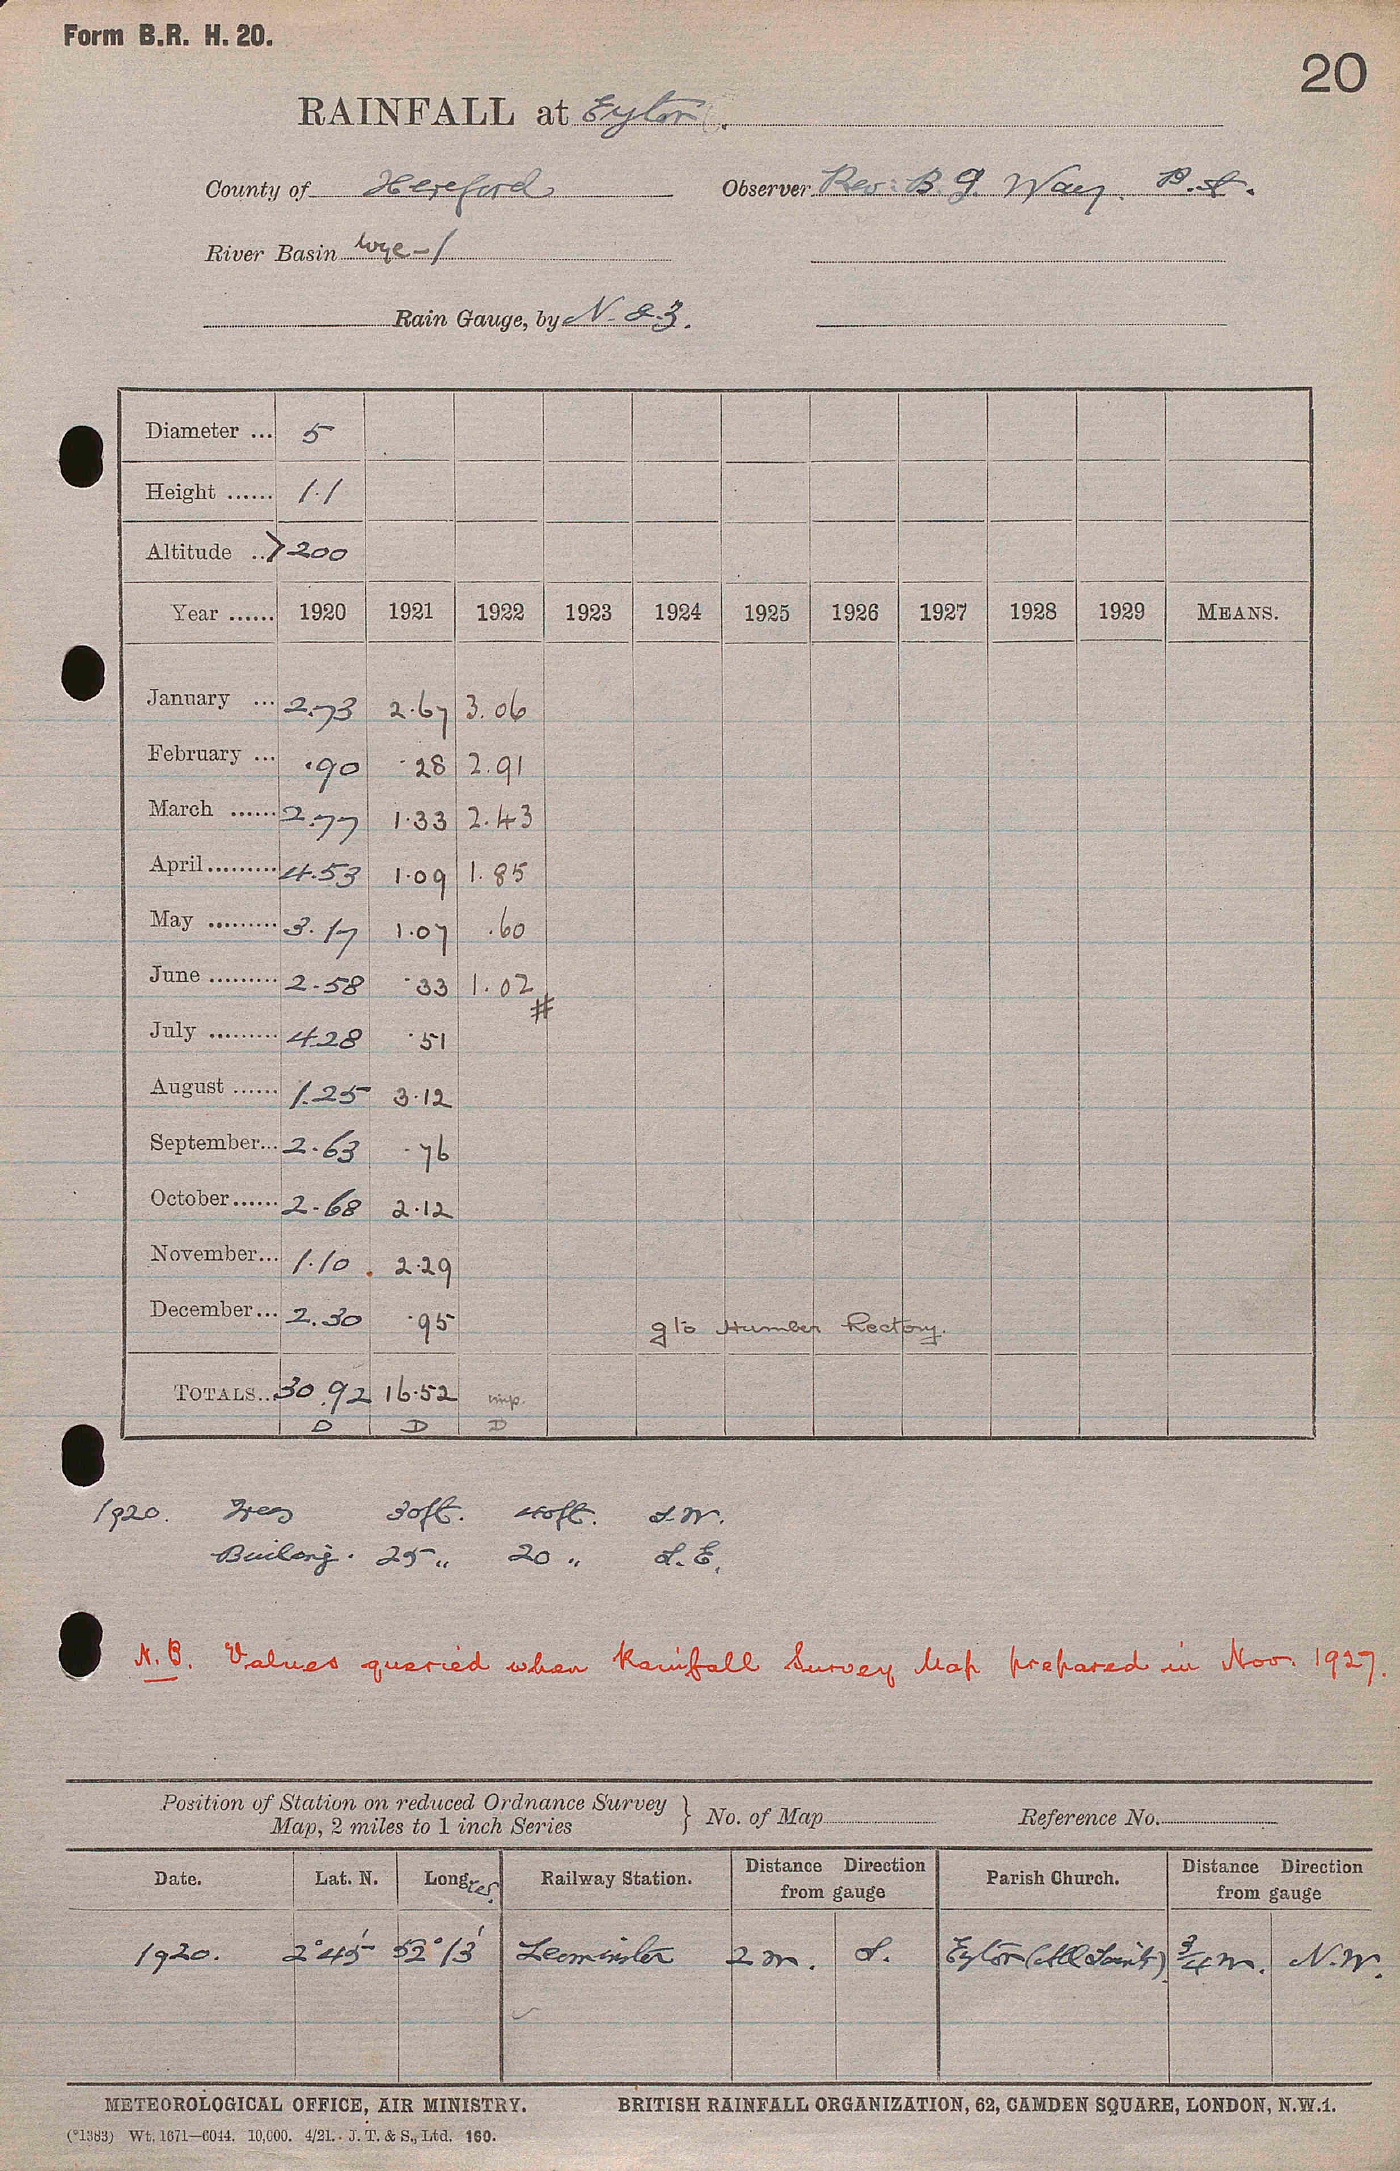 Form B.R. H. 20.
20
RAINFALL at Eyton.
County of Hereford Observer Rev: B. G. Way.
River Basin Wye-1
Rain Gauge, by N. & Z.
Diameter ... 5
Height ...... 1.1
Altitude .. >200
Year ...... 1920 1921 1922 1923 1924 1925 1926 1927 1928 1929 MEANS.
January ... 2.73 2.67 3.06
February ... .90 .28 2.91
March ...... 2.77 1.33 2.43
April ......... 4.53 1.09 1.85
May ......... 3.17 1.07 .60
June ......... 2.58 .33 1.02 #
July ......... 4.28 .51
August ...... 1.25 3.12
September... 2.63 .76
October ...... 2.68 2.12
November... 1.10 2.29
December... 2.30 .95 g to Humber Rectory.
TOTALS.. 30.92 16.52 imp.
D D D
1920. Trees 30ft. 40ft. S.W.
Building. 25 „ 20 „ S.E.
N.B. Values queried when Rainfall Survey Map prepared in Nov. 1927.
Position of Station on reduced Ordnance Survey
Map, 2 miles to 1 inch Series } No. of Map Reference No.
Date. Lat. N. Long Railway Station. Distance Direction from gauge Parish Church. Distance Direction from gauge
1920. 2°45' 52°13' Leominster 2 m. S. Eyton (All Saints) 3/4 m. N.W.
METEOROLOGICAL OFFICE, AIR MINISTRY. BRITISH RAINFALL ORGANIZATION, 62, CAMDEN SQUARE, LONDON, N.W.1.
(*1383) Wt. 1671—6044. 10,000. 4/21. J. T. & S., Ltd. 160.